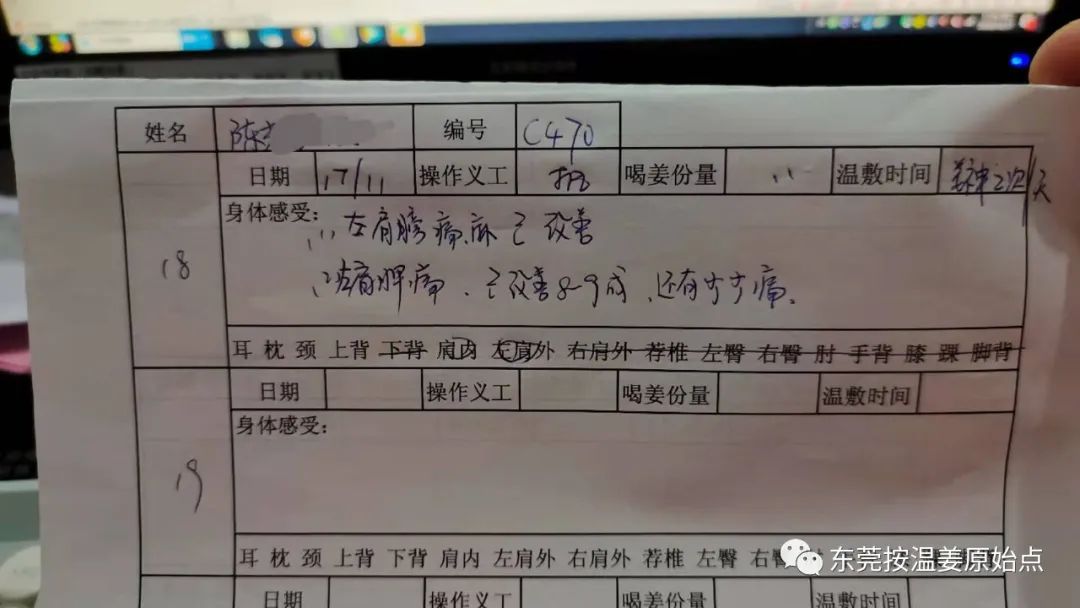 姓名 陈 编号 C470
日期 17/11 操作义工 喝姜份量 温敷时间 2次/天
18
身体感受:
左肩膀痛.麻已改善
左肩胛痛、已改善8-9成、还有少少痛.
耳 枕 颈 上背 下背 肩内 左肩外 右肩外 荐椎 左臀 右臀 肘 手背 膝 踝 脚背
日期 操作义工 喝姜份量 温敷时间
19
身体感受:
耳 枕 颈 上背 下背 肩内 左肩外 右肩外 荐椎 左臀 右臀
东莞按温姜原始点
日期 操作义工 喝姜份量 温敷时间